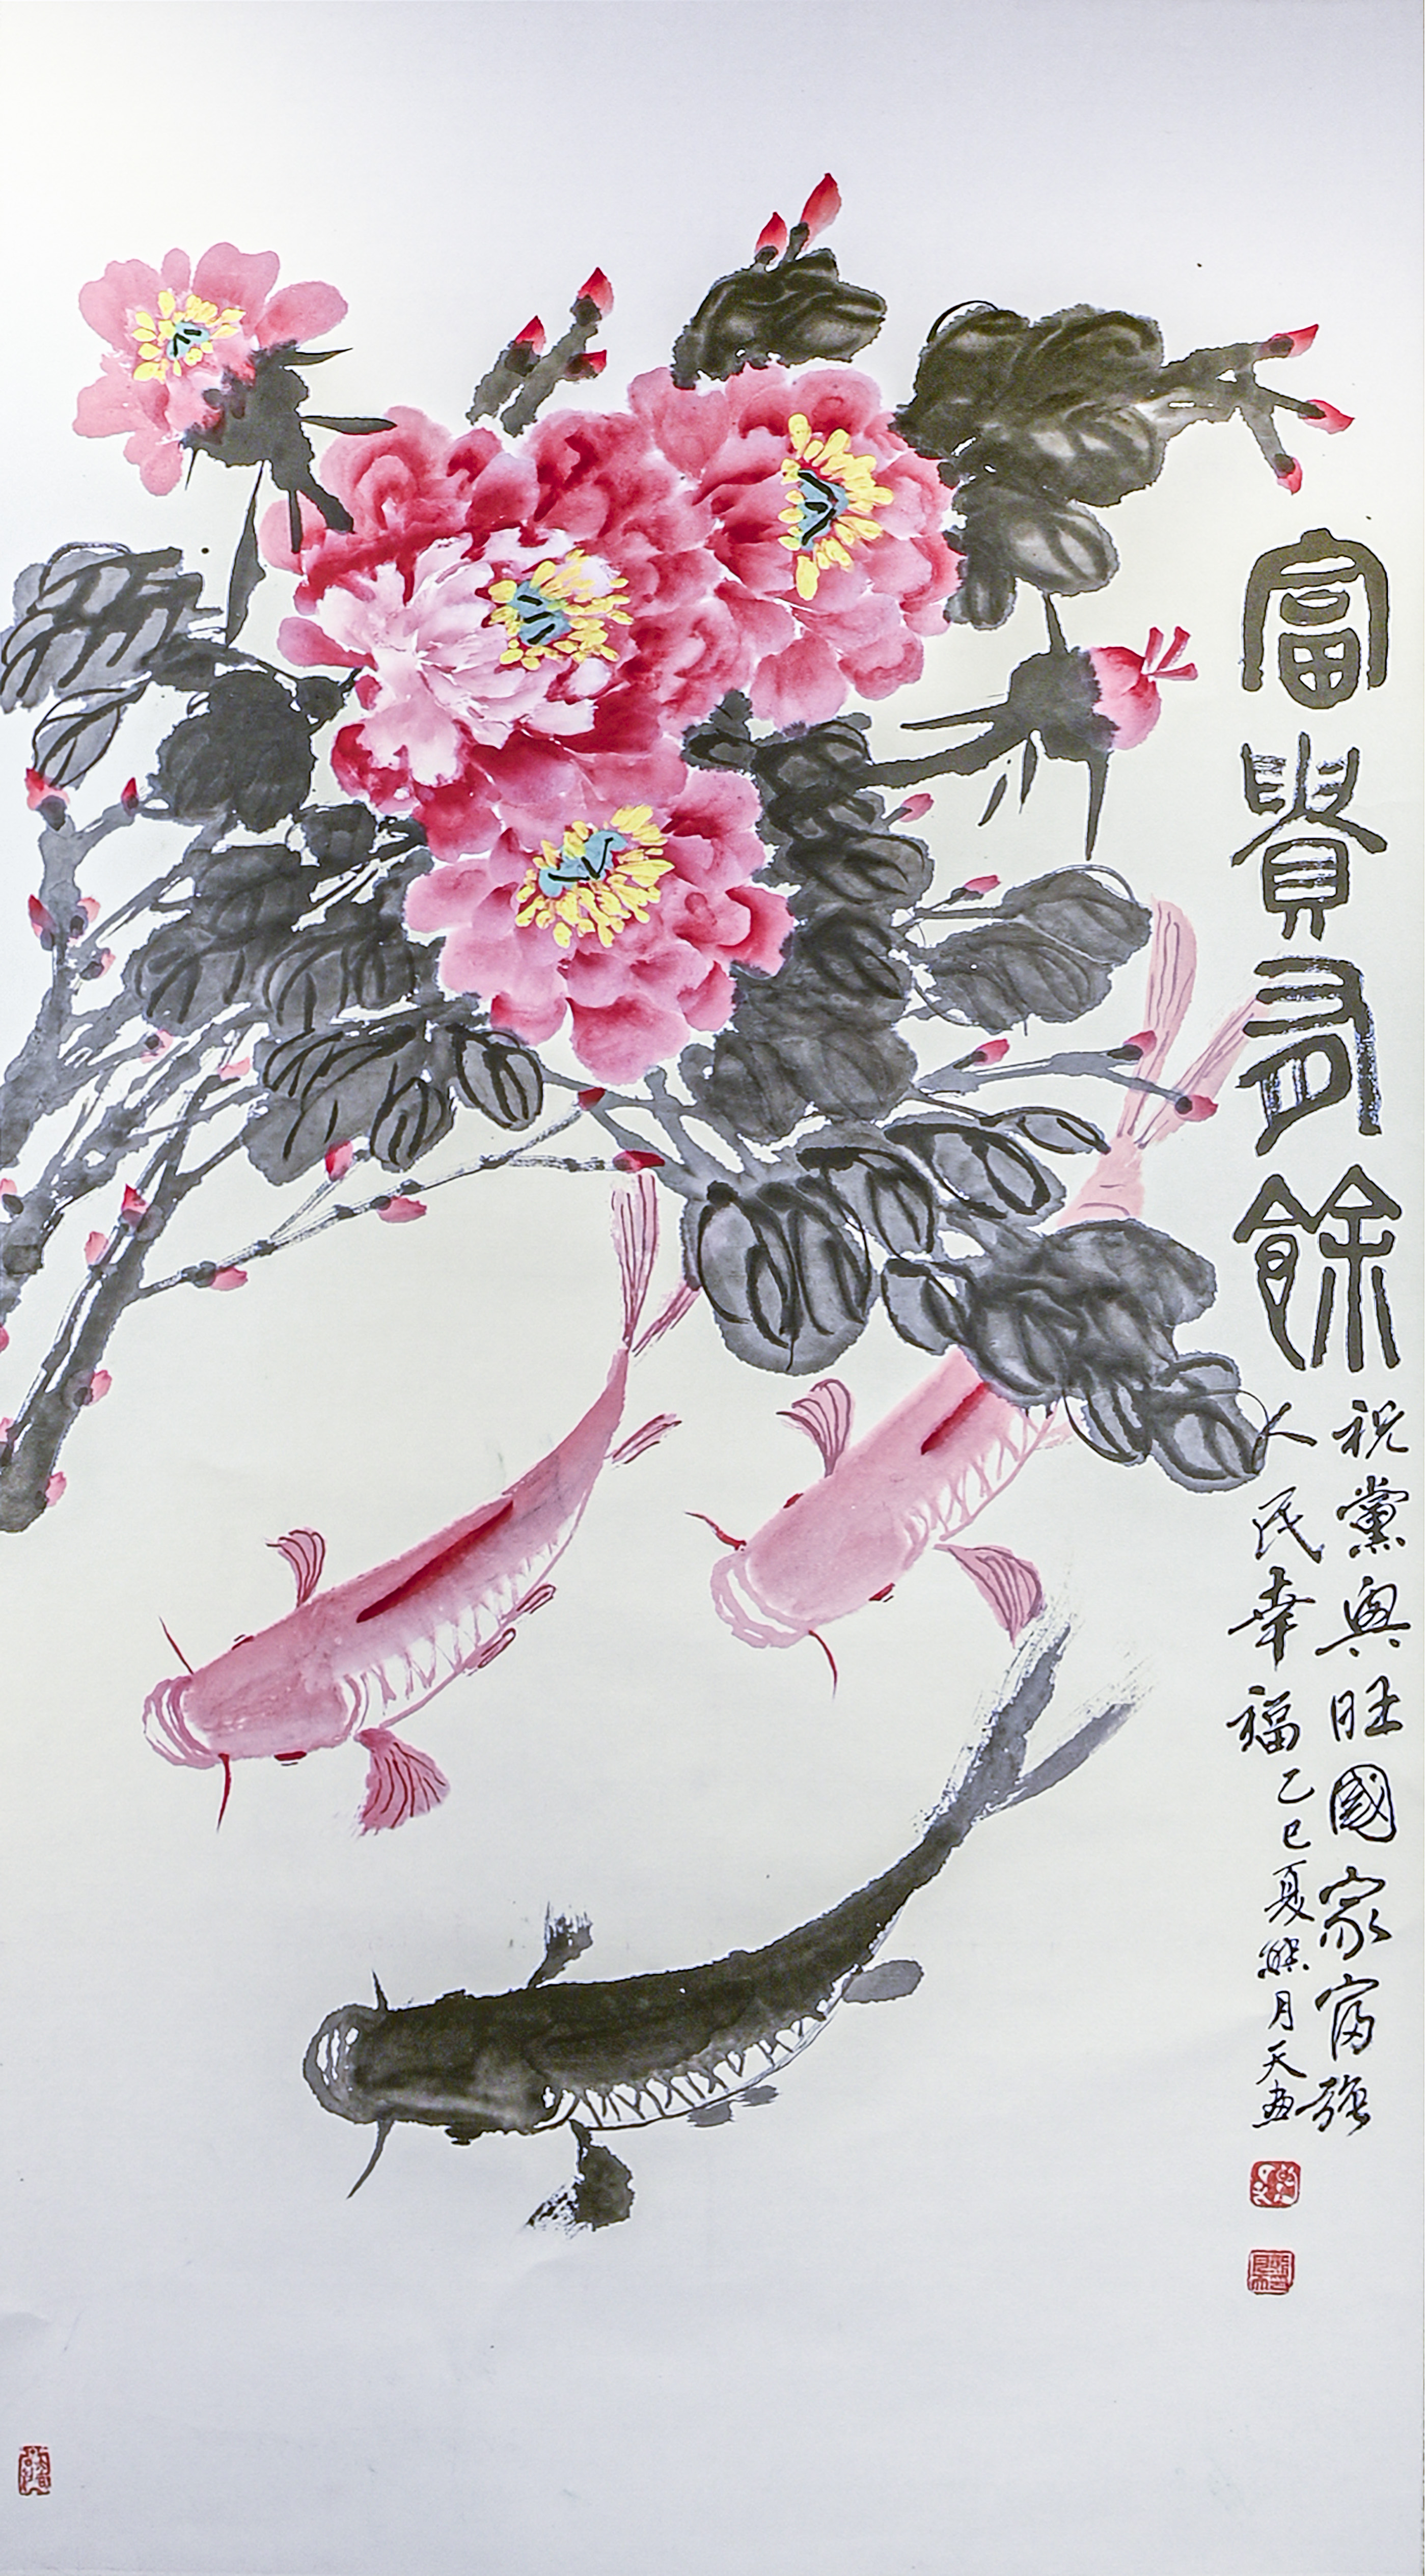 富貴有餘
祝黨興旺國家富強
人民幸福乙巳夏熊月天畫